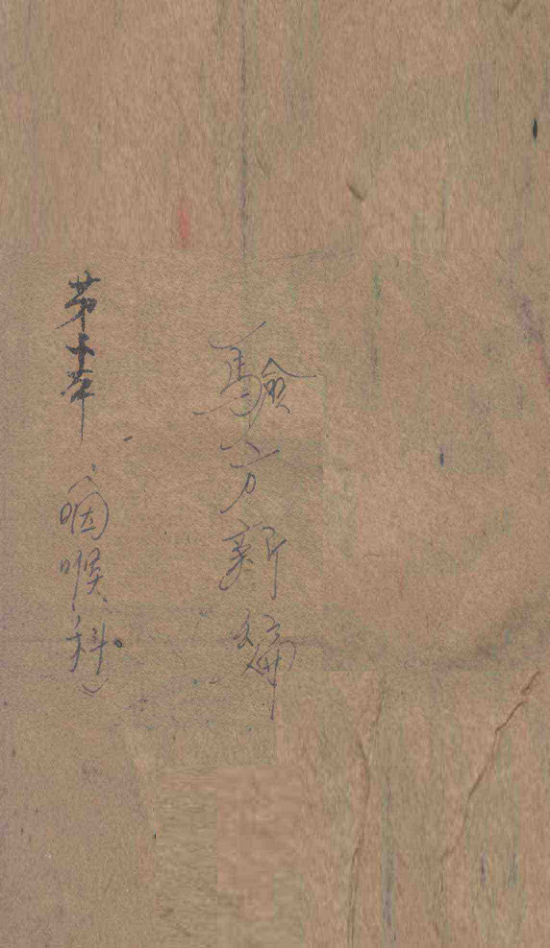 驗方新編
第十章
(咽喉科)